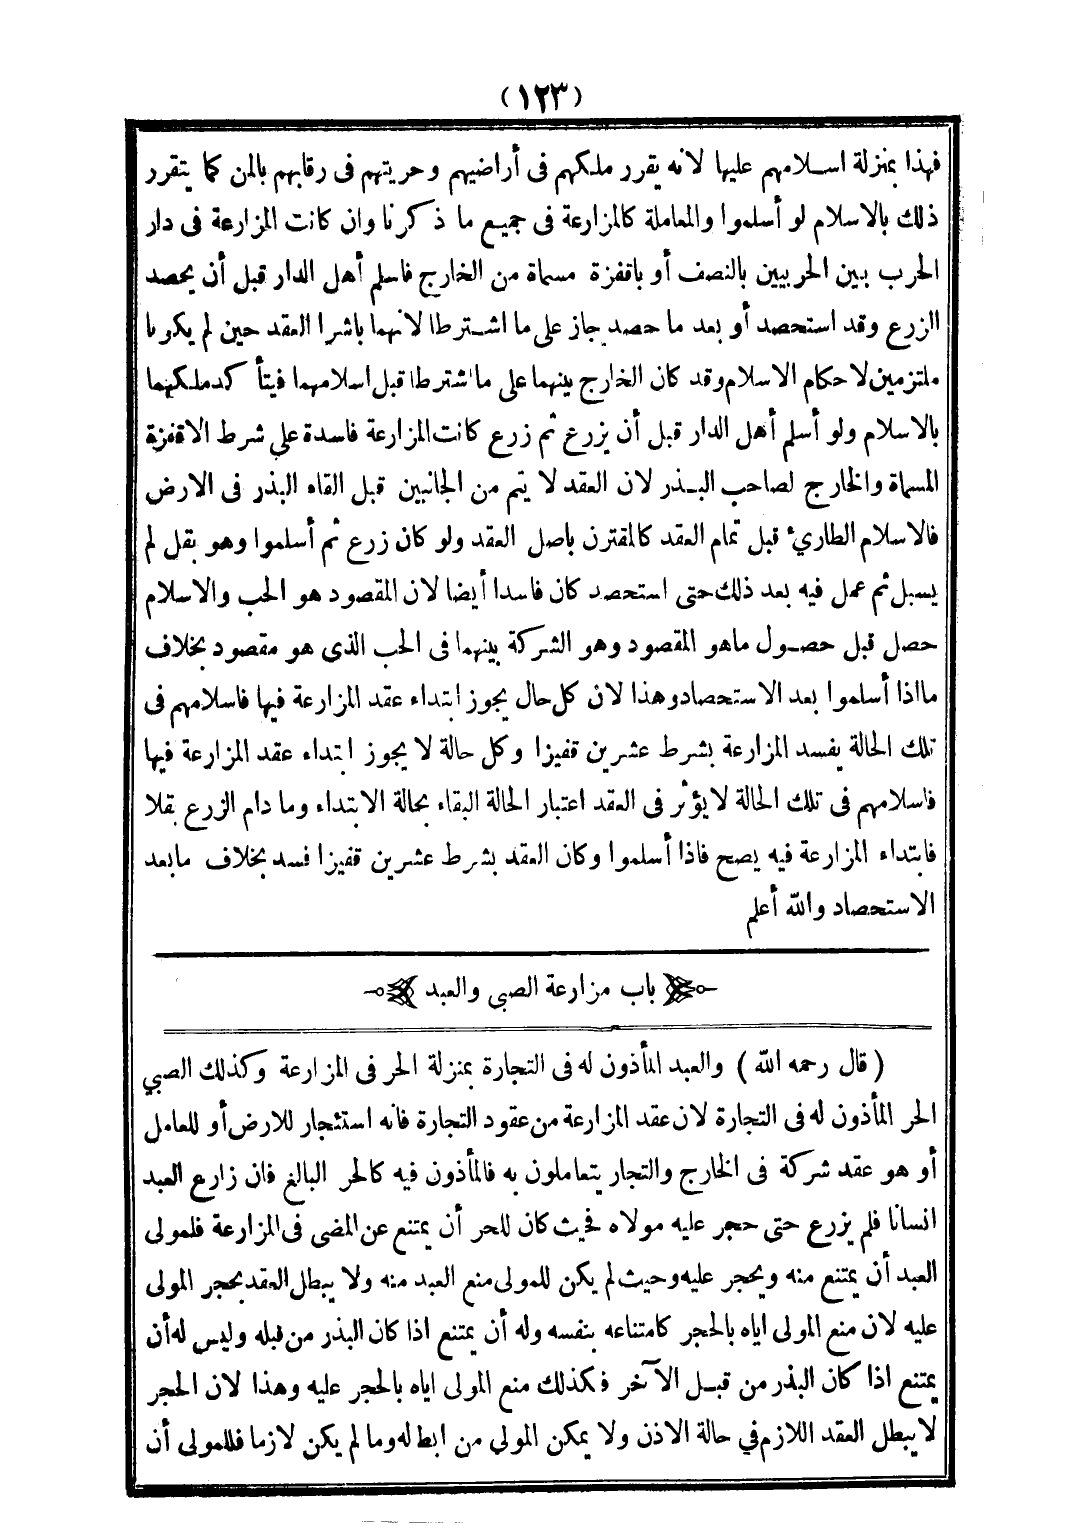 (١٢٣)
فهذا بمنزلة اسلامهم عليها لانه يقرر ملكهم فى أراضيهم وحريتهم فى رقابهم بالمن كما يتقرر
ذلك بالاسلام لو أسلموا والمعاملة كالمزارعة فى جميع ما ذكرنا وان كانت المزارعة فى دار
الحرب بين الحربيين بالنصف أو باقفزة مسماة من الخارج فاسلم أهل الدار قبل أن يحصد
الزرع وقد استحصد أو بعد ما حصد جاز على ما اشترطا لانهما باشرا العقد حين لم يكونا
ملتزمين لاحكام الاسلام وقد كان الخارج بينهما على ما اشترطا قبل اسلامهما فيتأكد ملكهما
بالاسلام ولو أسلم أهل الدار قبل أن يزرع ثم زرع كانت المزارعة فاسدة على شرط الاقفزة
المسماة والخارج لصاحب البذر لان العقد لا يتم من الجانبين قبل القاء البذر فى الارض
فالاسلام الطارئ قبل تمام العقد كالمقترن باصل العقد ولو كان زرع ثم أسلموا وهو بقل لم
يسبل ثم عمل فيه بعد ذلك حتى استحصد كان فاسدا أيضا لان المقصود هو الحب والاسلام
حصل قبل حصول ماهو المقصود وهو الشركة بينهما فى الحب الذى هو مقصود بخلاف
مااذا أسلموا بعد الاستحصاد وهذا لان كل حال يجوز ابتداء عقد المزارعة فيها فاسلامهم فى
تلك الحالة يفسد المزارعة بشرط عشرين قفيزا وكل حالة لا يجوز ابتداء عقد المزارعة فيها
فاسلامهم فى تلك الحالة لا يؤثر فى العقد اعتبار الحالة البقاء بحالة الابتداء وما دام الزرع بقلا
فابتداء المزارعة فيه يصح فاذا أسلموا وكان العقد بشرط عشرين قفيزا فسد بخلاف مابعد
الاستحصاد والله أعلم
باب مزارعة الصبى والعبد
(قال رحمه الله) والعبد المأذون له فى التجارة بمنزلة الحر فى المزارعة وكذلك الصبي
الحر المأذون له فى التجارة لان عقد المزارعة من عقود التجارة فانه استئجار للارض أو للعامل
أو هو عقد شركة فى الخارج والتجار يتعاملون به فالمأذون فيه كالحر البالغ فان زارع العبد
انسانا فلم يزرع حتى حجر عليه مولاه فحيث كان للحر أن يمتنع عن المضى فى المزارعة فلمولى
العبد أن يمتنع منه ويحجر عليه وحيث لم يكن للمولى منع العبد منه ولا يبطل العقد بحجر المولى
عليه لان منع المولى اياه بالحجر كامتناعه بنفسه وله أن يمتنع اذا كان البذر من قبله وليس له أن
يمتنع اذا كان البذر من قبل الآخر فكذلك منع المولى اياه بالحجر عليه وهذا لان الحجر
لا يبطل العقد اللازم في حالة الاذن ولا يمكن المولى من ابطاله وما لم يكن لازما فللمولى أن